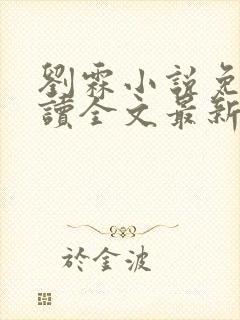 劉霖小說免
讀全文最新
於金波